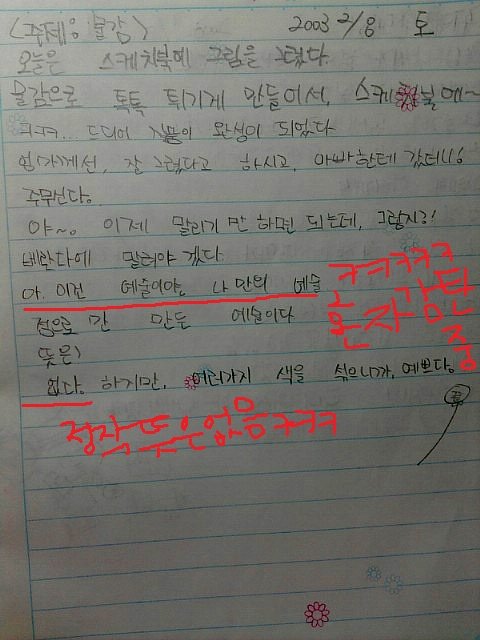 <주제: 물감> 2003 2/8 토
오늘은 스케치북에 그림을 그렸다.
물감으로 톡톡 튀기게 만들어서, 스케치북에~
ㅋㅋ.. 드디어 작품이 완성이 되었다
엄마께선, 잘 그렸다고 하시고, 아빠한테 갔더니!
주무신다.
야~. 이제 말리기만 하면 되는데, 그렇지!
베란다에 말려야 겠다.
아. 이건 예술이야. 나만의 예술
점으로 만 만든 예술이다
뜻은)
없다. 하지만, 여러가지 색을 섞으니까, 예쁘다.
끝
ㅋㅋㅋㅋㅋ
혼자감탄중
정작 뜻은없음ㅋㅋㅋ